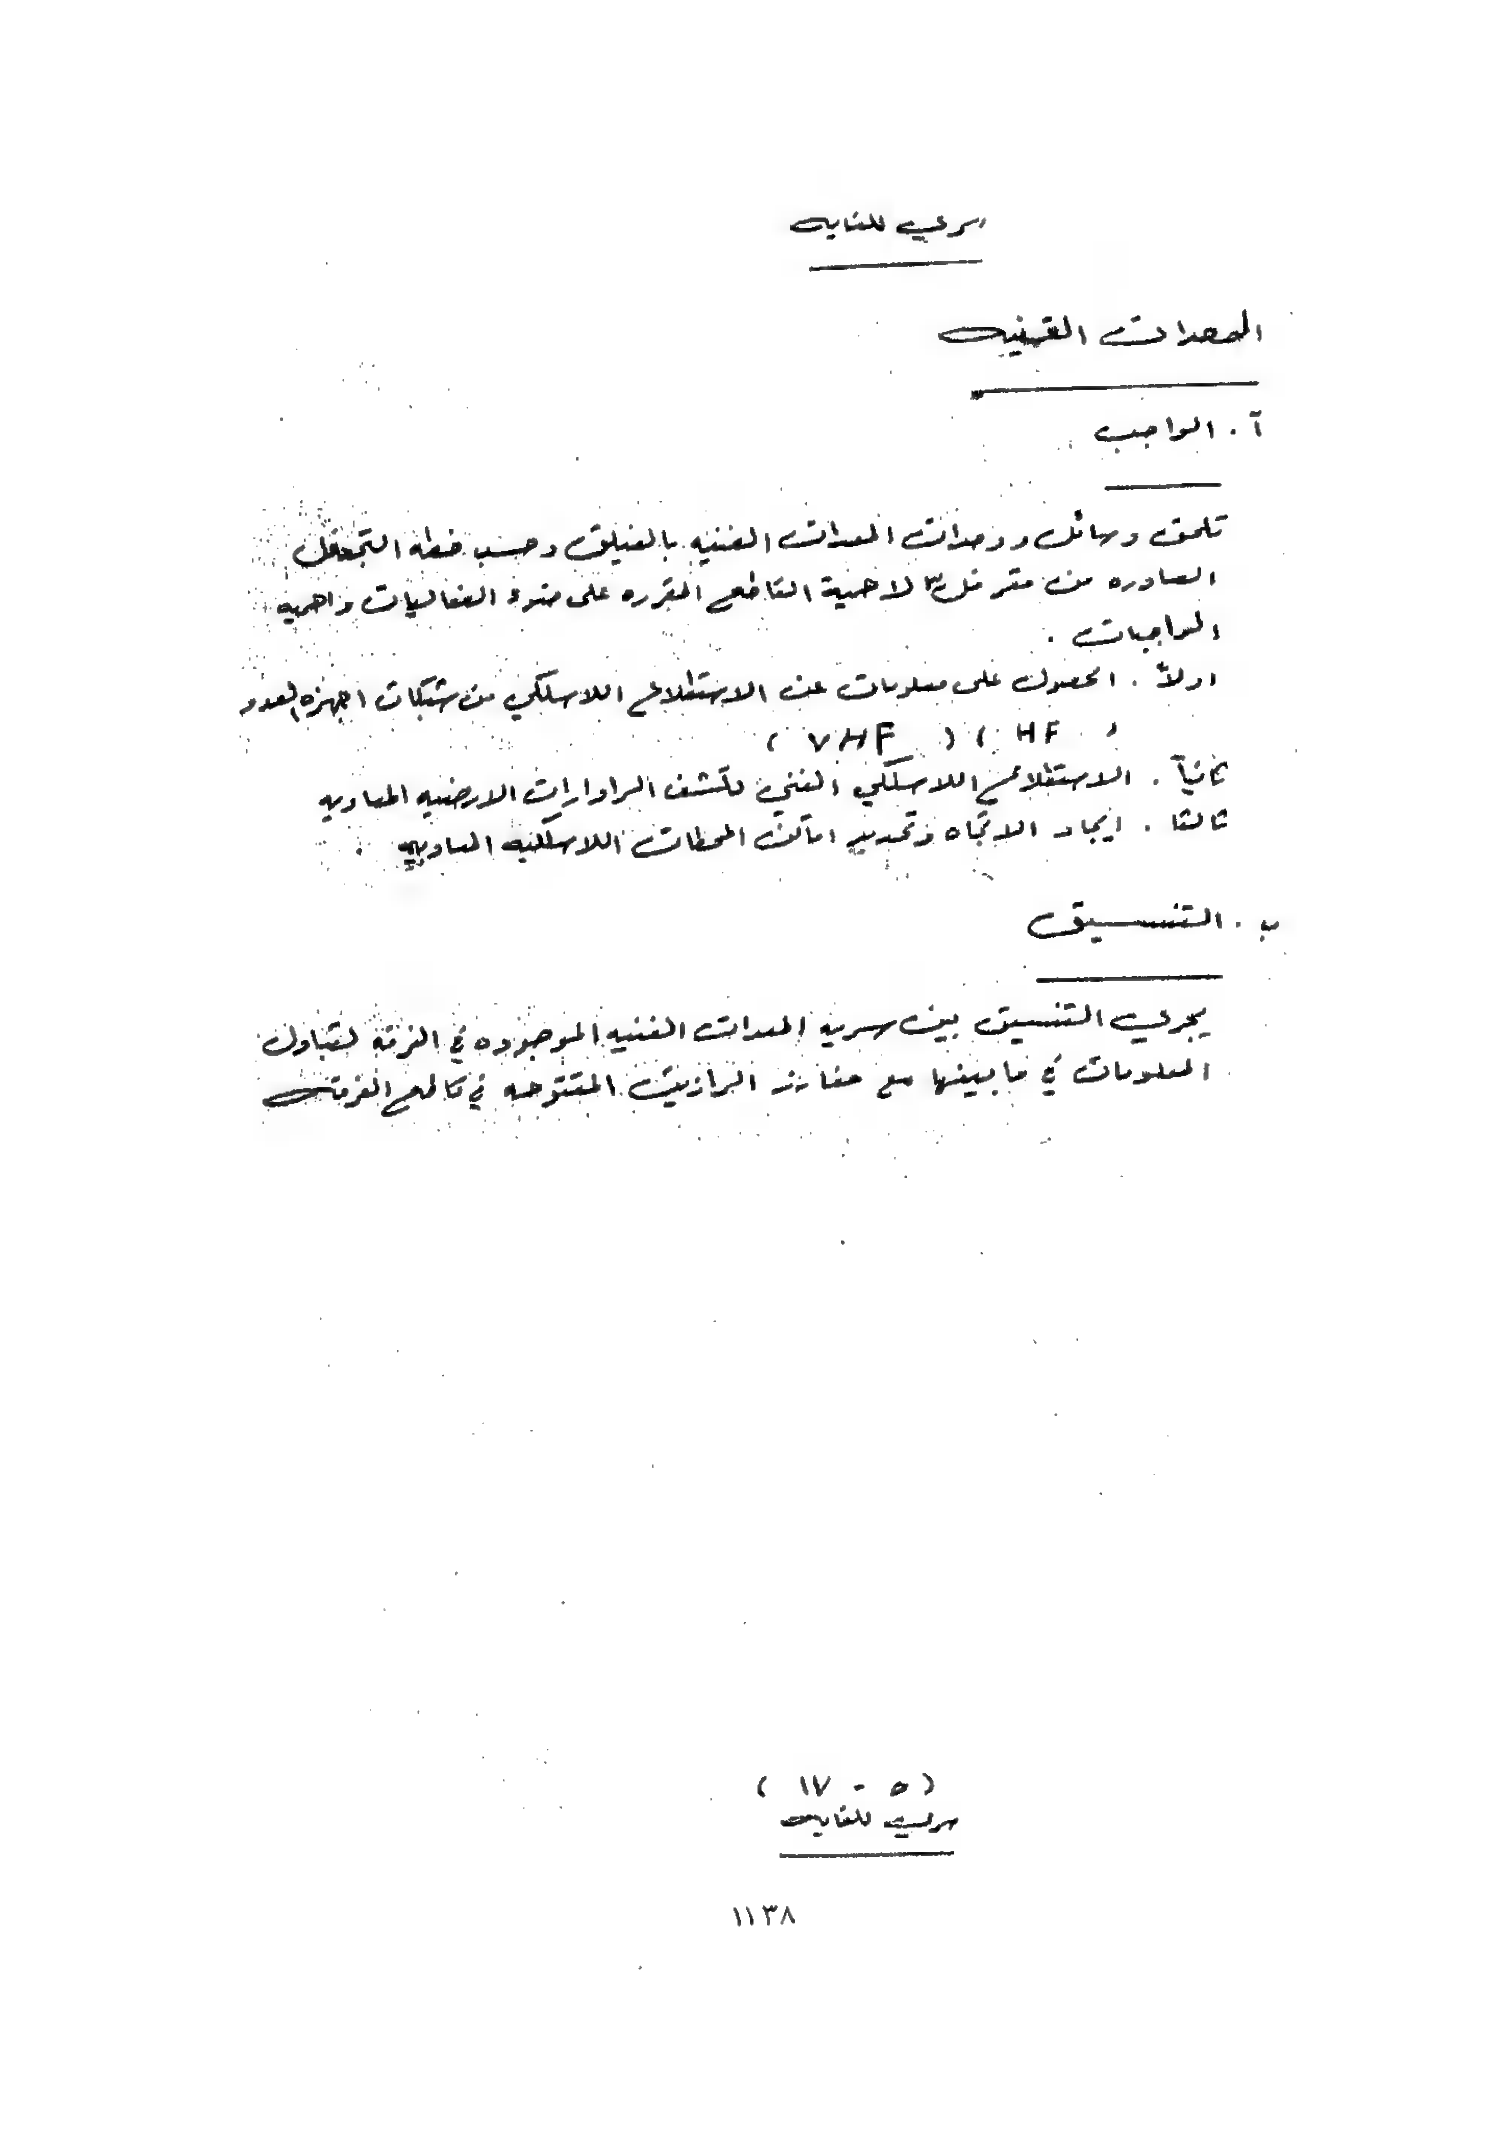 سري للغاية
المعدات الفنية
آ . الواجب
تلحق وسائل ووحدات المعدات الفنيه بالفيلق وحسب خطه التجحفل
الصادره من مقر فل٣ لاهمية القاطع المقرره على ضوء الفعاليات واهميه
الواجبات .
اولاً . الحصول على معلومات عن الاستطلاع اللاسلكي من شبكات اجهزه العدو
( VHF ) ( HF ،
ثانياً . الاستطلاع اللاسلكي الفني لكشف الرادارات الارضيه المعاديه
ثالثا . ايجاد الاتجاه وتحديد اماكن المحطات اللاسلكيه المعاديه .
ب . التنسيق
يجري التنسيق بين سريه المعدات الفنيه الموجوده في الفرقة لتبادل
المعلومات في ما بينها مع مفارز الرازيت المفتوحه في قاطع الفرقة
( ٥ - ١٧ )
سري للغاية
١١٣٨